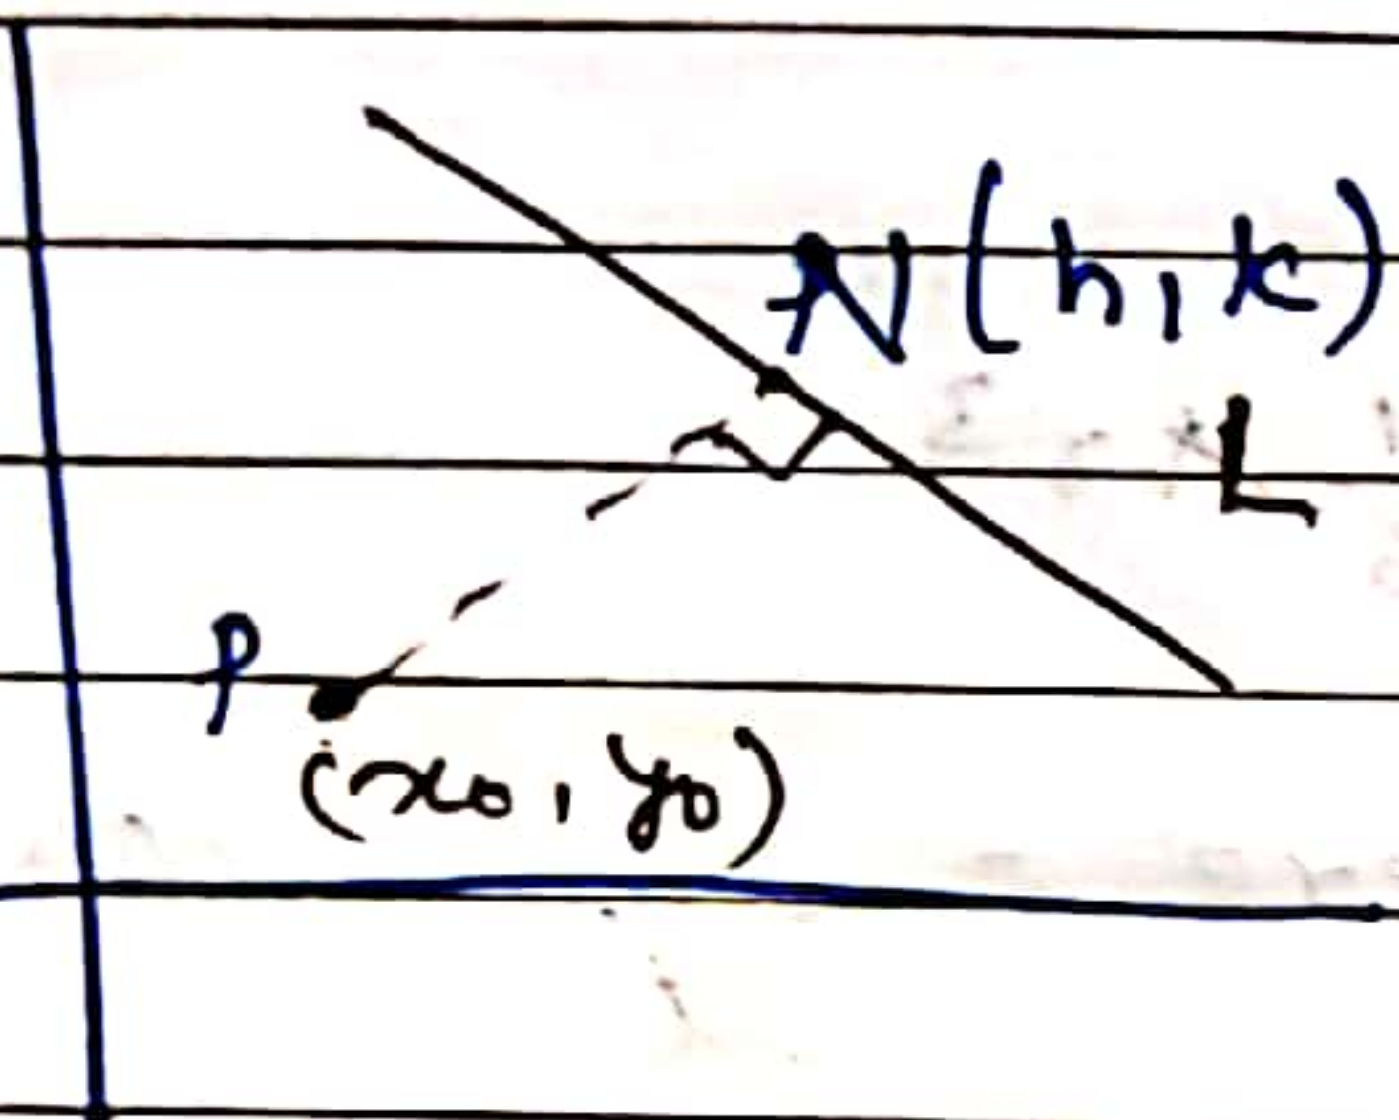 N(h,k)
L
P
(x₀, y₀)